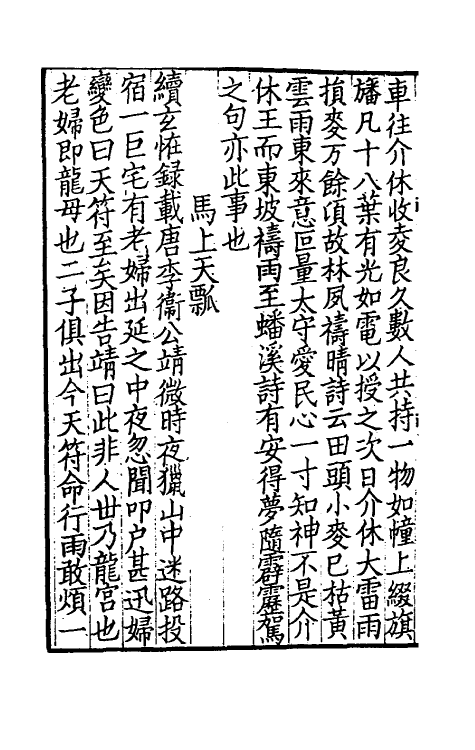 車往介休收麥良久數人共持一物如幢上綴旗
旛凡十八葉有光如電以授之次日介休大雷雨
損麥万餘頃故林夙禱晴詩云田頭小麥已枯黃
雲雨東來意叵量太守愛民心一寸知神不是介
休王而東坡禱雨至蟠溪詩有安得夢隨霹靂駕
之句亦此事也
馬上天瓢
續玄恠録載唐李衞公靖微時夜獵山中迷路投
宿一巨宅有老婦出延之中夜忽聞叩户甚迅婦
變色曰天符至矣因告靖曰此非人世乃龍宫也
老婦即龍母也二子俱出今天符命行雨敢煩一